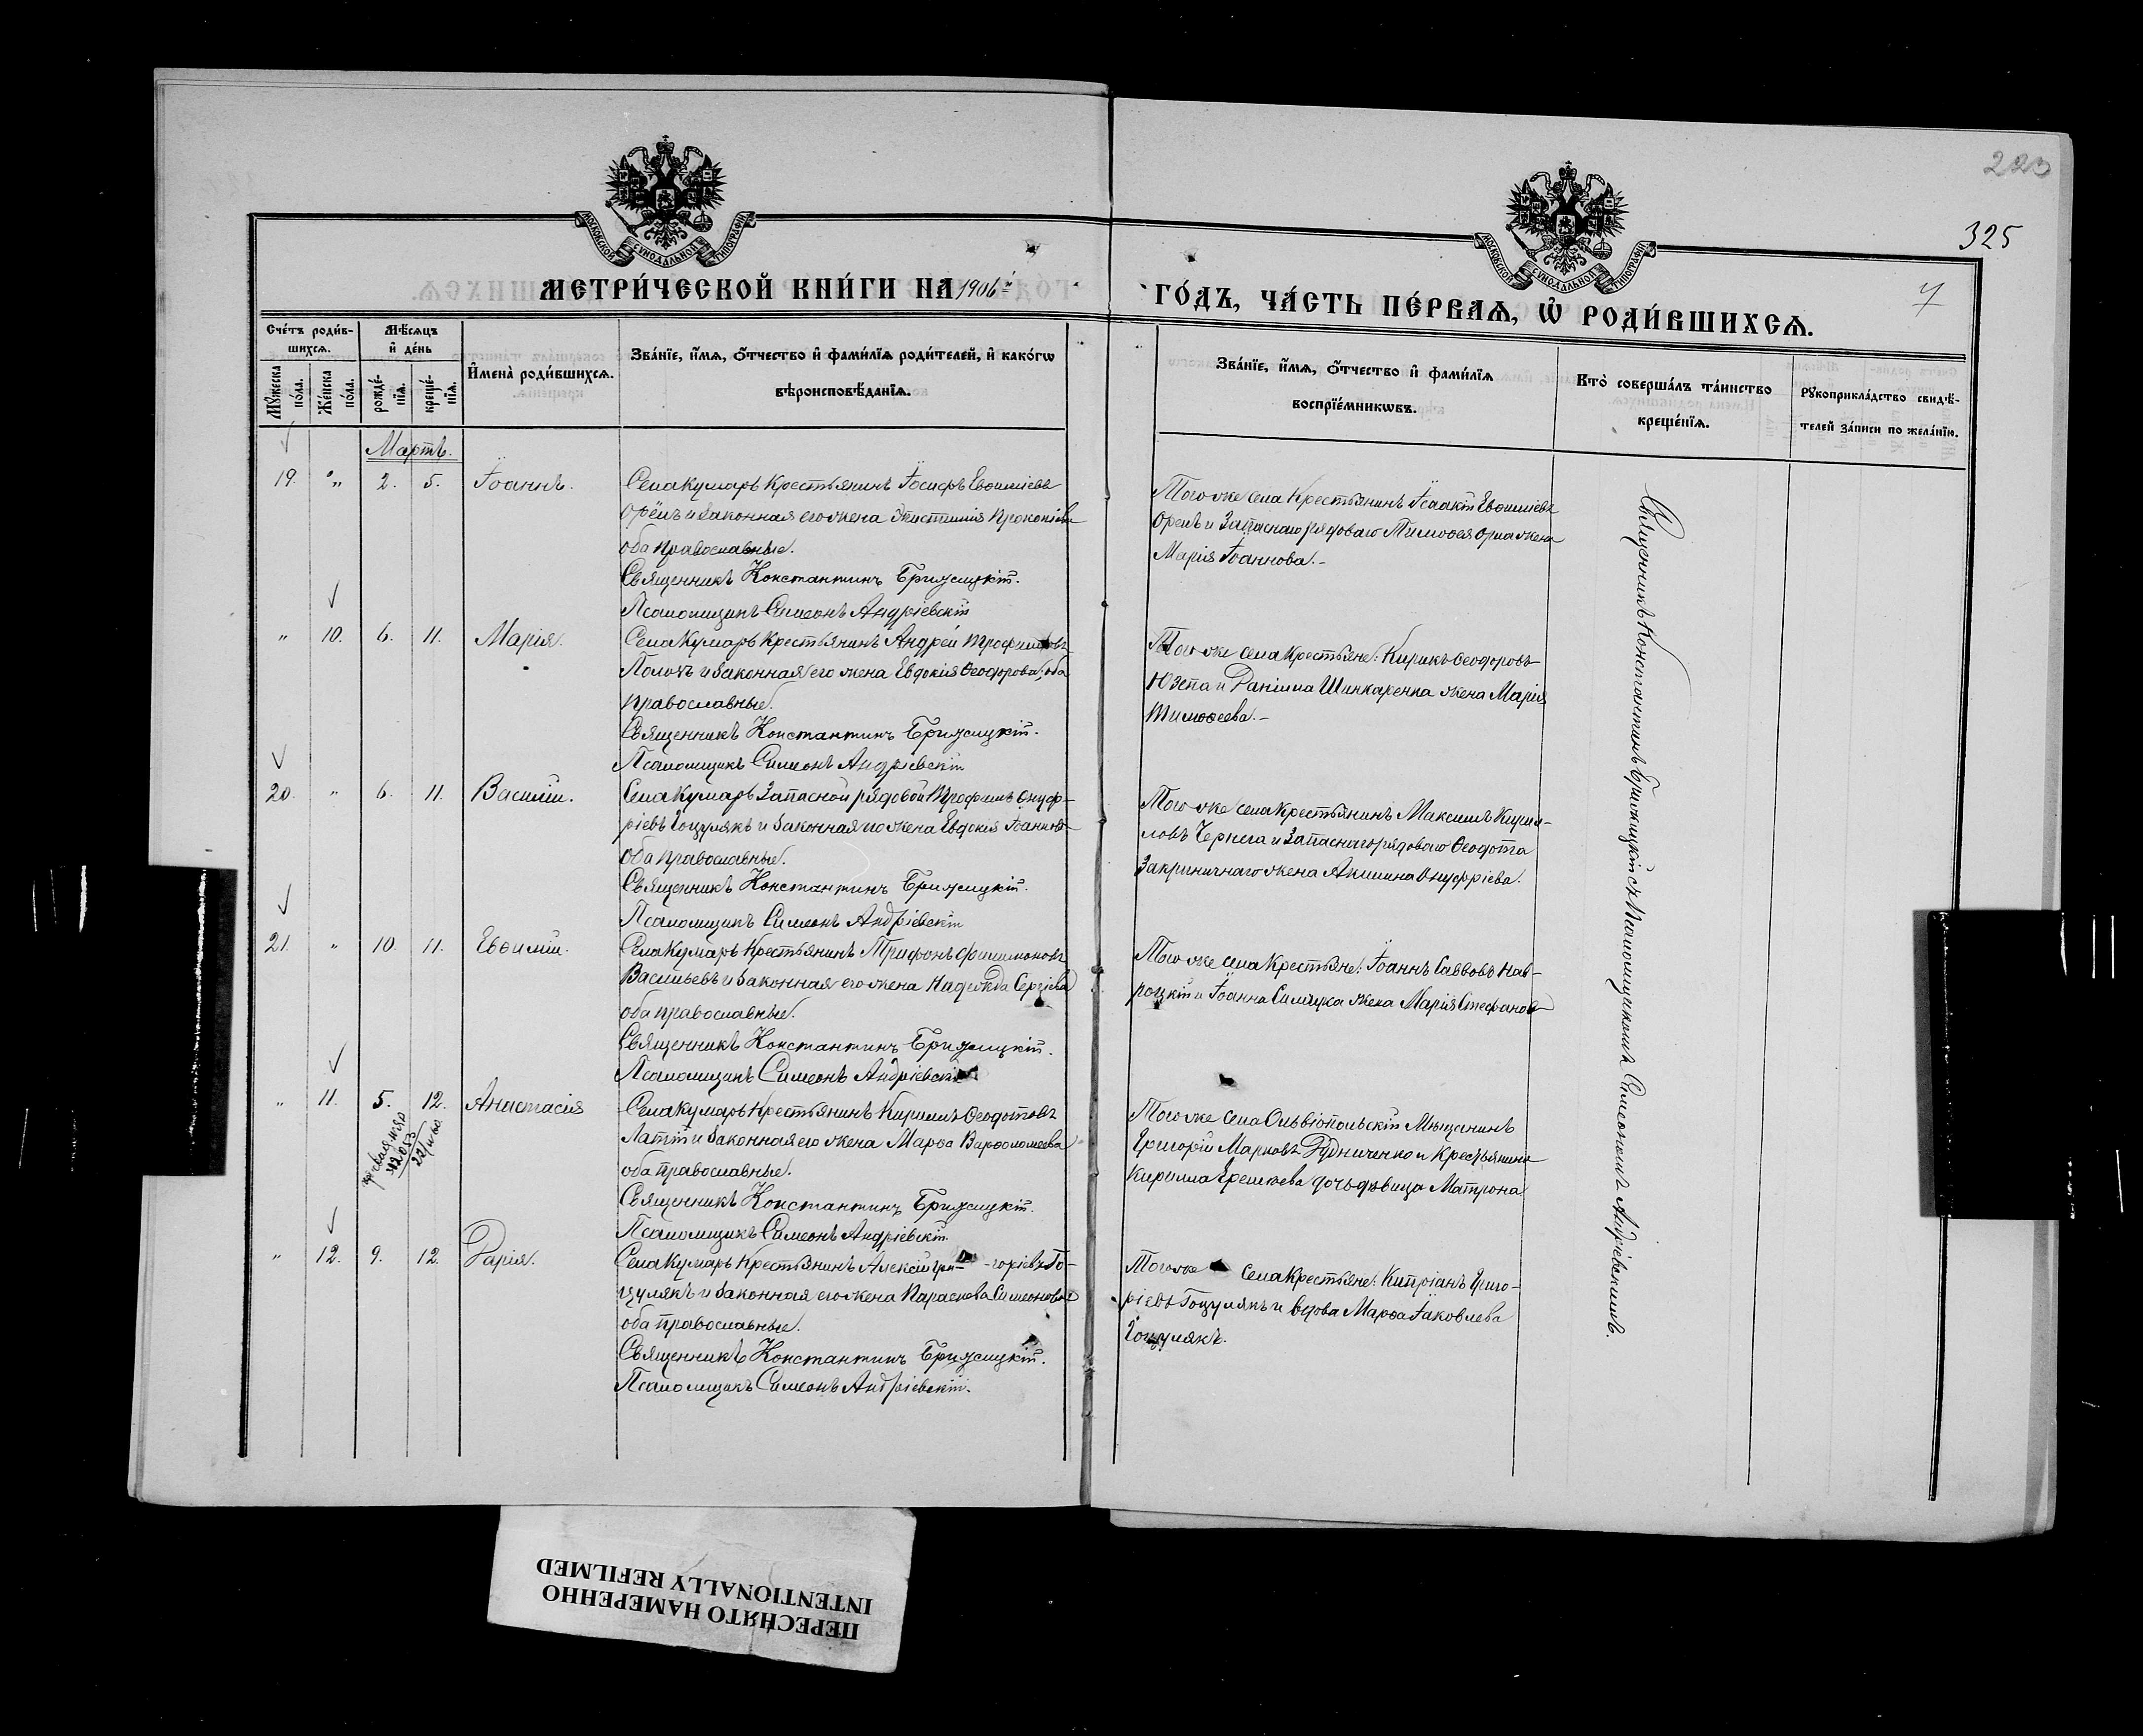 223
325
7
МОСКОВСКОЙ СѴНОДАЛЬНОЙ ТИПОГРАФІИ
МОСКОВСКОЙ СѴНОДАЛЬНОЙ ТИПОГРАФІИ
МЕТРИ́ЧЕСКОЙ КНИ́ГИ НА 1906й
ГО́ДЪ, ЧА́СТЬ ПЕ́РВАѦ, Ѡ҆ РОДИ́ВШИХСѦ.
Сче́тъ роди́в-
шихсѧ.
Мꙋ́жеска по́ла.
Же́нска по́ла.
Мѣ́сѧцъ
и҆ де́нь
рожде́-
нїѧ.
креще́-
нїѧ.
И҆мена̀ роди́вшихсѧ.
Зва́нїе, и҆́мѧ, ѻ҆́тчество и҆ фами́лїѧ роди́телей, и҆ како́гѡ
вѣроисповѣ́данїѧ.
Зва́нїе, и҆́мѧ, ѻ҆́тчество и҆ фами́лїѧ
воспрїе́мникѡвъ.
Кто̀ соверша́лъ та́инство
креще́нїѧ.
Рꙋкоприкла́дство свидѣ́-
телей за́писи по жела́нїю.
Мартъ.
19. " 2. 5. Іоаннъ.
Села Кумаръ Крестьянинъ Іосифъ Евѳиміевъ
Орелъ и законная его жена Прокопіева
оба православные.
Священникъ Константинъ Брижицкій.
Псаломщикъ Симеонъ Андріевскій
Того же села Крестьянинъ Ісаакій Евѳиміевъ
Орелъ и Запаснаго рядоваго Тимоѳея Орла жена
Марія Іоаннова.-
" 10. 6. 11. Марія.
Села Кумаръ Крестьянинъ Андрей Трофимовъ
и законная его жена Евдокія Ѳеодорова, оба
православные.
Священникъ Константинъ Брижицкій.
Псаломщикъ Симеонъ Андріевскій
Того же села Крестьяне: Кирикъ Ѳеодоровъ
Юзепа и Даніила Шинкаренка жена Марія
Тимоѳеева.-
20. " 6. 11. Василій.
Села Кумаръ Запасной рядовой Трофимъ Онуф-
ріевъ Гоцулякъ и законная его жена Евдокія Іоаннова
оба православные.
Священникъ Константинъ Брижицкій.
Псаломщикъ Симеонъ Андріевскій
Того же села Крестьянинъ Максимъ Кирил-
ловъ Чернега и Запаснаго рядоваго Ѳеодота
Закриничнаго жена Акилина Онуфріева.
21. " 10. 11. Евѳимій.
Села Кумаръ Крестьянинъ Трифонъ Филимоновъ
Васильевъ и законная его жена Надежда Сергіева
оба православные.
Священникъ Константинъ Брижицкій.
Псаломщикъ Симеонъ Андріевскій
Того же села Крестьяне: Іоаннъ Савовъ Нав-
роцкій и Іоанна жена Марія Стефанова
" 11. 5. 12. Анастасія
22/II 60
Села Кумаръ Крестьянинъ Кириллъ Ѳеодотовъ
Латій и законная его жена Марѳа Варѳоломеева
оба православные.
Священникъ Константинъ Брижицкій.
Псаломщикъ Симеонъ Андріевскій.
Того же села Ольвіопольскій Мѣщанинъ
Григорій Марковъ Рудниченко и Крестьянина
Кирилла дочь дѣвица Матрона
" 12. 9. 12. Дарія.
Села Кумаръ Крестьянинъ Алексій Гри- -горіевъ Го-
цулякъ и законная его жена Параскова Симеонова
оба православные.
Священникъ Константинъ Брижицкій.
Псаломщикъ Симеонъ Андріевскій.
Того же села Крестьяне: Кипріанъ Григо-
ріевъ Гоцулякъ и вдова Марѳа Іаковлева
Гоцулякъ.
Священникъ Константинъ Брижицкій съ Псаломщикомъ Симеономъ Андріевскимъ.
ПЕРЕСНЯТО НАМЕРЕННО
INTENTIONALLY REFILMED